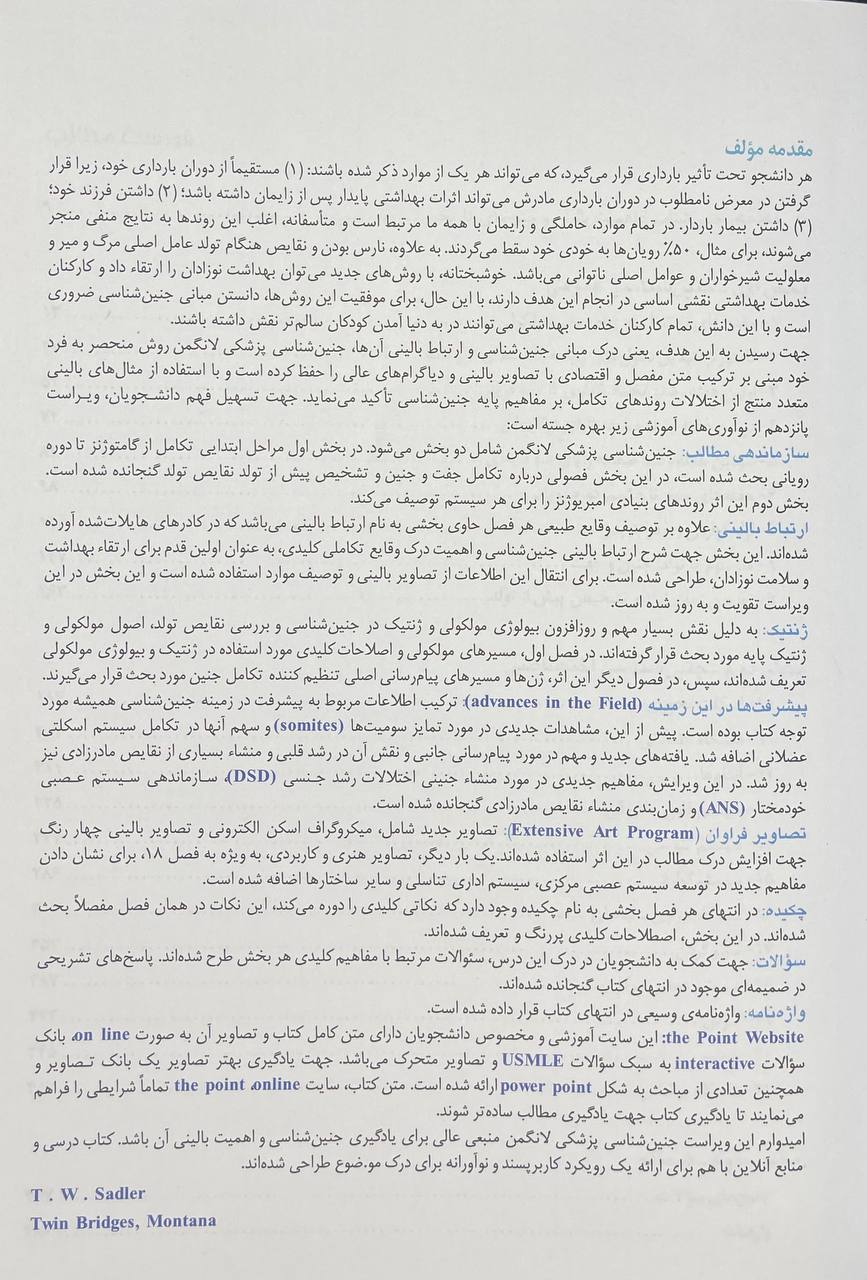 مقدمه مؤلف
هر دانشجو تحت تأثیر بارداری قرار می‌گیرد، که می‌تواند هر یک از موارد ذکر شده باشند: (۱) مستقیماً از دوران بارداری خود، زیرا قرار
گرفتن در معرض نامطلوب در دوران بارداری مادرش می‌تواند اثرات بهداشتی پایدار پس از زایمان داشته باشد؛ (۲) داشتن فرزند خود؛
(۳) داشتن بیمار باردار. در تمام موارد، حاملگی و زایمان با همه ما مرتبط است و متأسفانه، اغلب این روندها به نتایج منفی منجر
می‌شوند، برای مثال، ۵۰٪ رویان‌ها به خودی خود سقط می‌گردند. به علاوه، نارس بودن و نقایص هنگام تولد عامل اصلی مرگ و میر و
معلولیت شیرخواران و عوامل اصلی ناتوانی می‌باشد. خوشبختانه، با روش‌های جدید می‌توان بهداشت نوزادان را ارتقاء داد و کارکنان
خدمات بهداشتی نقشی اساسی در انجام این هدف دارند، با این حال، برای موفقیت این روش‌ها، دانستن مبانی جنین‌شناسی ضروری
است و با این دانش، تمام کارکنان خدمات بهداشتی می‌توانند در به دنیا آمدن کودکان سالم‌تر نقش داشته باشند.
جهت رسیدن به این هدف، یعنی درک مبانی جنین‌شناسی و ارتباط بالینی آن‌ها، جنین‌شناسی پزشکی لانگمن روش منحصر به فرد
خود مبنی بر ترکیب متن مفصل و اقتصادی با تصاویر بالینی و دیاگرام‌های عالی را حفظ کرده است و با استفاده از مثال‌های بالینی
متعدد منتج از اختلالات روندهای تکامل، بر مفاهیم پایه جنین‌شناسی تأکید می‌نماید. جهت تسهیل فهم دانشجویان، ویراست
پانزدهم از نوآوری‌های آموزشی زیر بهره جسته است:
سازماندهی مطالب: جنین‌شناسی پزشکی لانگمن شامل دو بخش می‌شود. در بخش اول مراحل ابتدایی تکامل از گامتوژنز تا دوره
رویانی بحث شده است، در این بخش فصولی درباره تکامل جفت و جنین و تشخیص پیش از تولد نقایص تولد گنجانده شده است.
بخش دوم این اثر روندهای بنیادی امبریوژنز را برای هر سیستم توصیف می‌کند.
ارتباط بالینی: علاوه بر توصیف وقایع طبیعی هر فصل حاوی بخشی به نام ارتباط بالینی می‌باشد که در کادرهای هایلات‌شده آورده
شده‌اند. این بخش جهت شرح ارتباط بالینی جنین‌شناسی و اهمیت درک وقایع تکاملی کلیدی، به عنوان اولین قدم برای ارتقاء بهداشت
و سلامت نوزادان، طراحی شده است. برای انتقال این اطلاعات از تصاویر بالینی و توصیف موارد استفاده شده است و این بخش در این
ویراست تقویت و به روز شده است.
ژنتیک: به دلیل نقش بسیار مهم و روزافزون بیولوژی مولکولی و ژنتیک در جنین‌شناسی و بررسی نقایص تولد، اصول مولکولی و
ژنتیک پایه مورد بحث قرار گرفته‌اند. در فصل اول، مسیرهای مولکولی و اصلاحات کلیدی مورد استفاده در ژنتیک و بیولوژی مولکولی
تعریف شده‌اند، سپس، در فصول دیگر این اثر، ژن‌ها و مسیرهای پیام‌رسانی اصلی تنظیم کننده تکامل جنین مورد بحث قرار می‌گیرند.
پیشرفت‌ها در این زمینه (advances in the Field): ترکیب اطلاعات مربوط به پیشرفت در زمینه جنین‌شناسی همیشه مورد
توجه کتاب بوده است. پیش از این، مشاهدات جدیدی در مورد تمایز سومیت‌ها (somites) و سهم آنها در تکامل سیستم اسکلتی
عضلانی اضافه شد. یافته‌های جدید و مهم در مورد پیام‌رسانی جانبی و نقش آن در رشد قلبی و منشاء بسیاری از نقایص مادرزادی نیز
به روز شد. در این ویرایش، مفاهیم جدیدی در مورد منشاء جنینی اختلالات رشد جنسی (DSD)، سازماندهی سیستم عصبی
خودمختار (ANS) و زمان‌بندی منشاء نقایص مادرزادی گنجانده شده است.
تصاویر فراوان (Extensive Art Program): تصاویر جدید شامل، میکروگراف اسکن الکترونی و تصاویر بالینی چهار رنگ
جهت افزایش درک مطالب در این اثر استفاده شده‌اند.یک بار دیگر، تصاویر هنری و کاربردی، به ویژه به فصل ۱۸، برای نشان دادن
مفاهیم جدید در توسعه سیستم عصبی مرکزی، سیستم اداری تناسلی و سایر ساختارها اضافه شده است.
چکیده: در انتهای هر فصل بخشی به نام چکیده وجود دارد که نکاتی کلیدی را دوره می‌کند، این نکات در همان فصل مفصلاً بحث
شده‌اند. در این بخش، اصطلاحات کلیدی پررنگ و تعریف شده‌اند.
سؤالات: جهت کمک به دانشجویان در درک این درس، سئوالات مرتبط با مفاهیم کلیدی هر بخش طرح شده‌اند. پاسخ‌های تشریحی
در ضمیمه‌ای موجود در انتهای کتاب گنجانده شده‌اند.
واژه‌نامه: واژه‌نامه‌ی وسیعی در انتهای کتاب قرار داده شده است.
the Point Website: این سایت آموزشی و مخصوص دانشجویان دارای متن کامل کتاب و تصاویر آن به صورت on line، بانک
سؤالات interactive به سبک سؤالات USMLE و تصاویر متحرک می‌باشد. جهت یادگیری بهتر تصاویر یک بانک تصاویر و
همچنین تعدادی از مباحث به شکل power point ارائه شده است. متن کتاب، سایت the point ،online تماماً شرایطی را فراهم
می‌نمایند تا یادگیری کتاب جهت یادگیری مطالب ساده‌تر شوند.
امیدوارم این ویراست جنین‌شناسی پزشکی لانگمن منبعی عالی برای یادگیری جنین‌شناسی و اهمیت بالینی آن باشد. کتاب درسی و
منابع آنلاین با هم برای ارائه یک رویکرد کاربرپسند و نوآورانه برای درک مو.ضوع طراحی شده‌اند.
T . W . Sadler
Twin Bridges, Montana